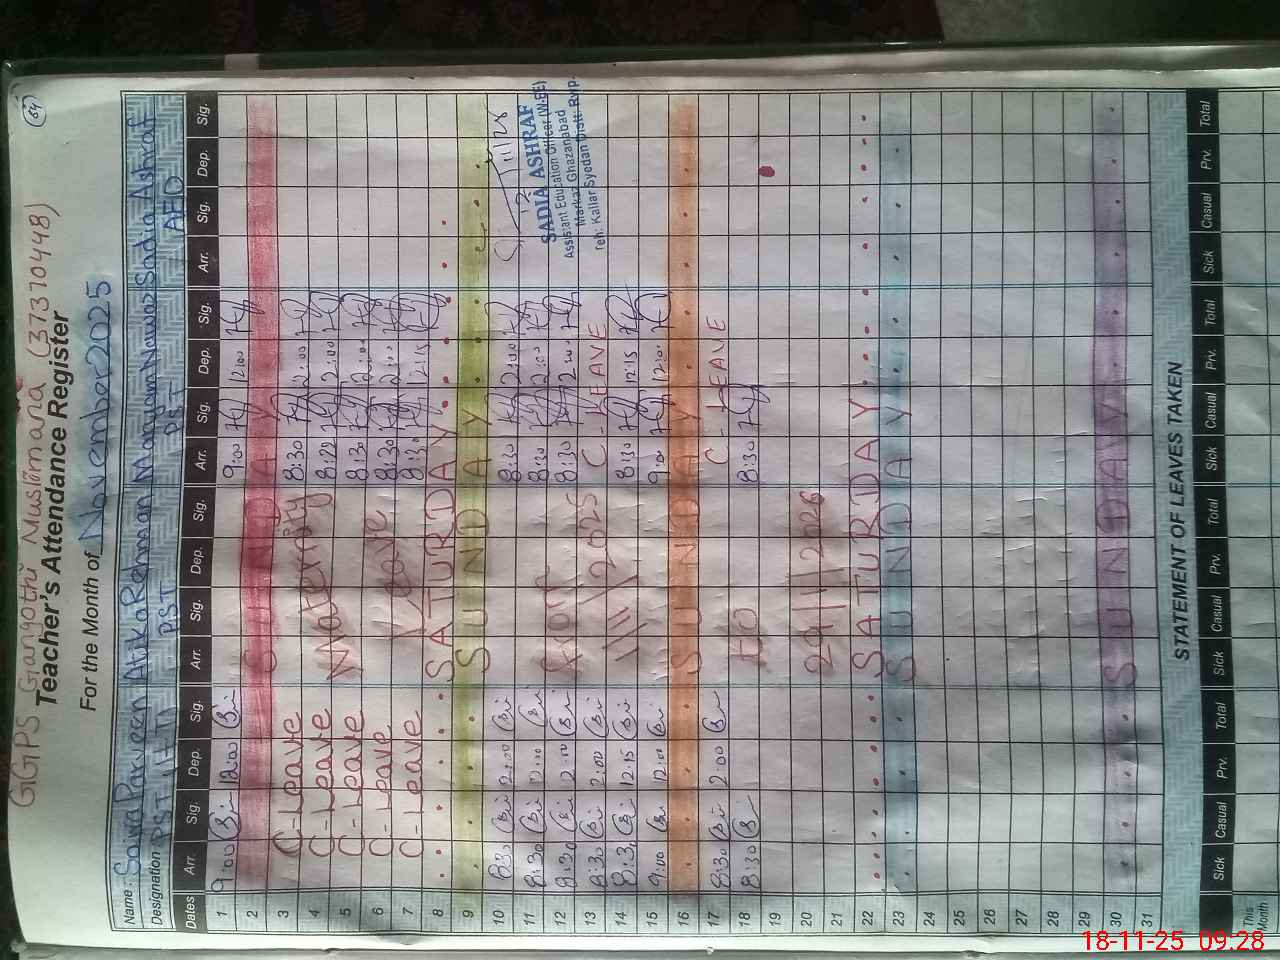 64
GGPS Giangothi Muslimana (37370448)
Teacher's Attendance Register
For the Month of November 2025
Name: Saira Parveen Atika Rehman Maryam Nawaz Sadia Ashraf
Designation PST PST AEO
Dates Arr. Sig. Dep. Sig. Arr. Sig. Dep. Sig. Arr. Sig. Dep. Sig. Arr. Sig. Dep. Sig.
1 9:00 12:00 9:00 12:00
2 SUNDAY
3 C-Leave 8:30 2:00
4 C-Leave Maternity 8:30 2:00
5 C-Leave 8:30 2:00
6 C-Leave Leave 8:30 2:00
7 C-Leave 8:30 12:15
8 SATURDAY
9 SUNDAY
10 8:30 2:00 8:30 2:00
11 8:30 2:00 8:30 2:00
12 8:30 2:00 from 8:30 2:00
13 8:30 2:00 C-LEAVE
14 8:30 12:15 8:30 12:15
15 9:00 12:00 9:00 12:00
16 SUNDAY
17 8:30 2:00 C-LEAVE
18 8:30 to 8:30
19
20
21
22 SATURDAY
23 SUNDAY
24
25
26
27
28
29
30 SUNDAY
31
SADIA ASHRAF
Assistant Education Officer (W-EE)
Markaz Ghazanabad
Teh: Kallar Syedan Distt: Rwp.
STATEMENT OF LEAVES TAKEN
Sick Casual Prv. Total Sick Casual Prv. Total Sick Casual Prv. Total Sick Casual Prv. Total
This Month
18-11-25 09:28